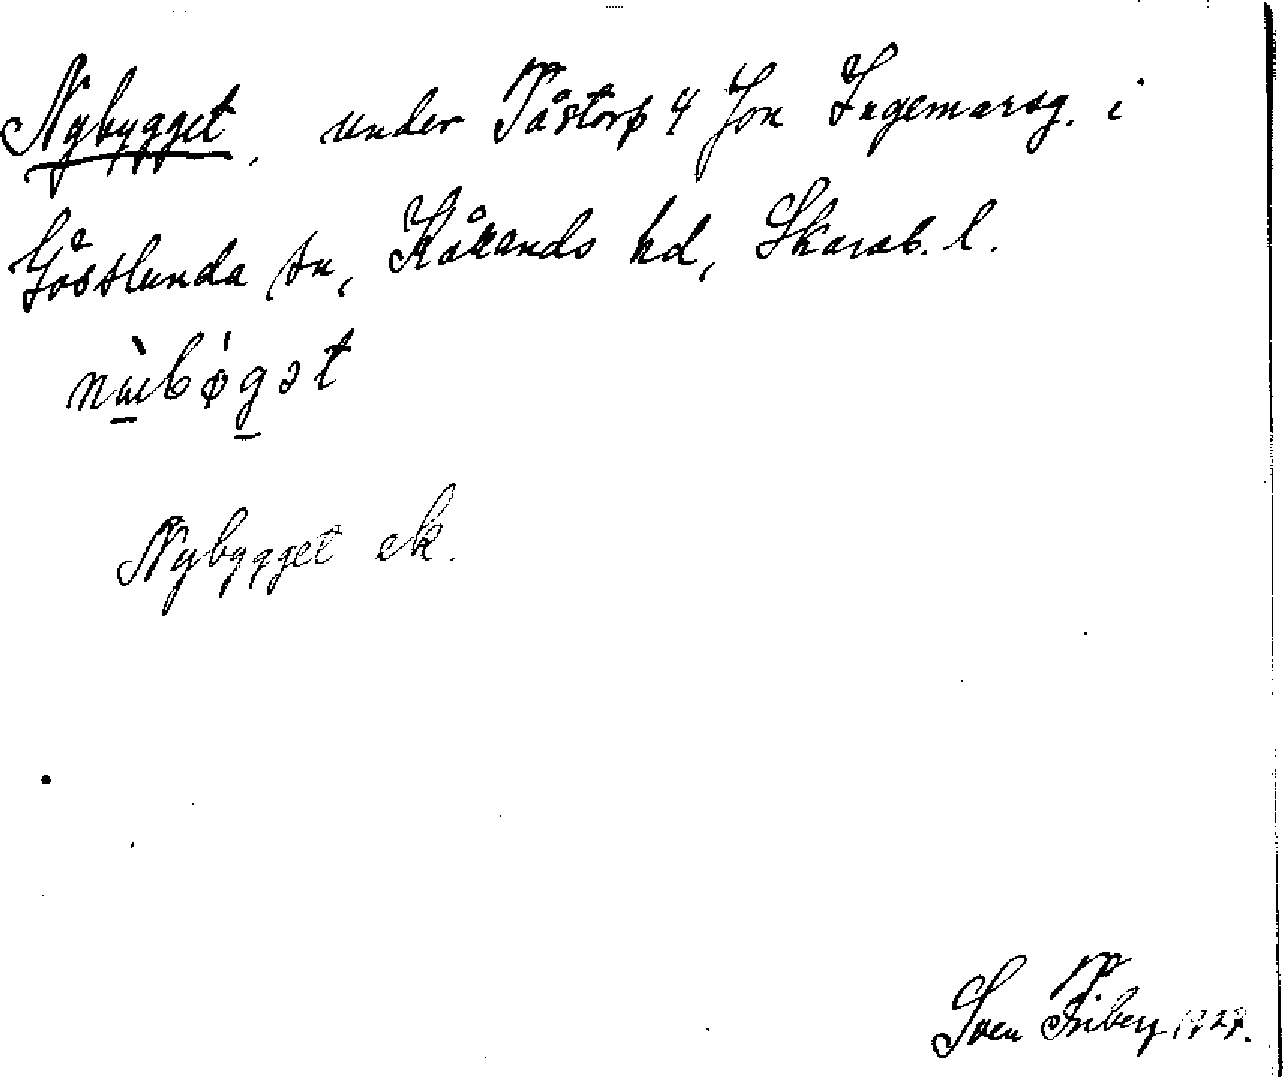 Nybygget, under Tåstorp 4 Jon Ingemarsg. i
Gösslunda sn, Kållands hd, Skarab. l.
Nybygget ek.
Sven Friberg 1927.